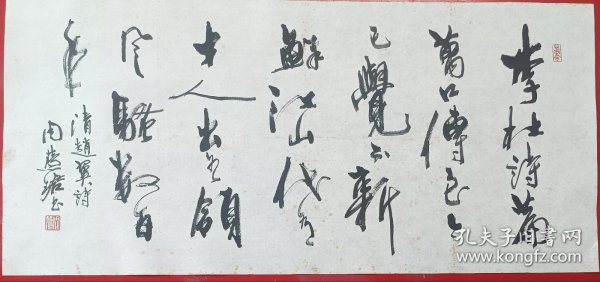 李杜詩篇
萬口傳至今
已覺不新
鮮江山代有
才人出各領
风騷數百
年
清趙翼詩
孔夫子旧书网
www.kongfz.com